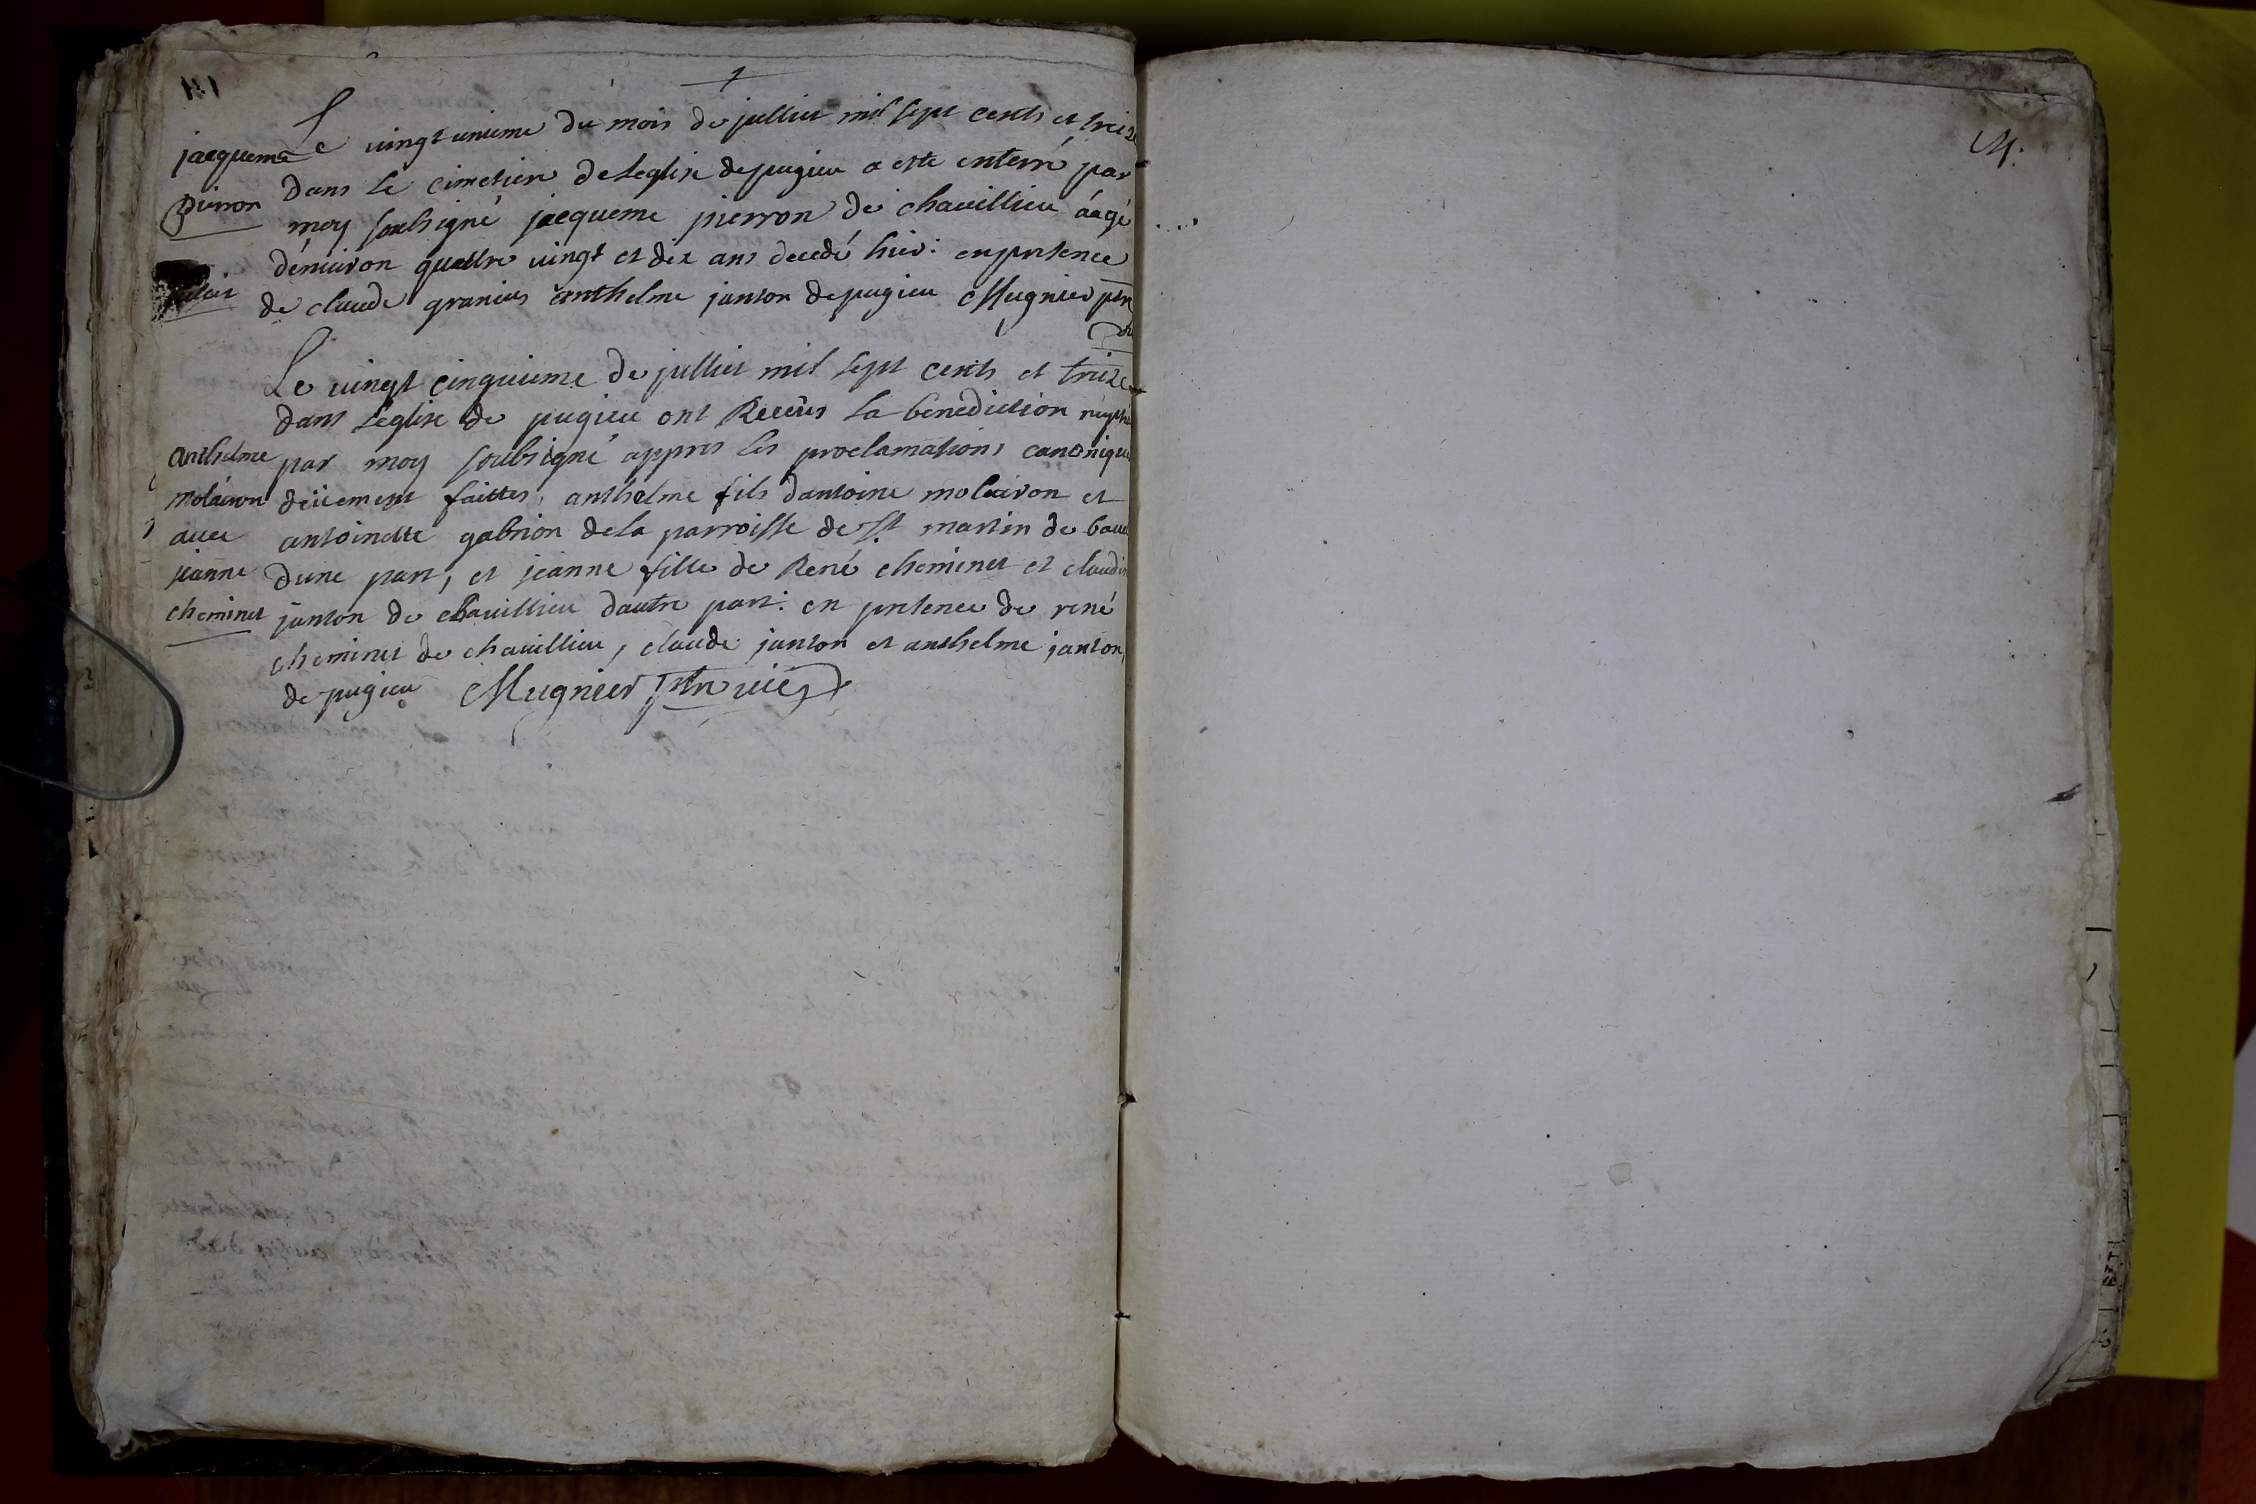 Le vingt unieme du mois de julliet mil sept cents et treize
jacquema
dans le cimetiere de leglise de pugieu a este enterré par
pierron
moy soubsigné jacqueme pierron de chavillieu áagé
d'enuiron quattre vingt et dix ans decedé hier: en pntence
de claude granius anthelme janton de pugieu Mugnier ptre
Le vingt cinquieme de julliet mil sept cents et treize
dans l'eglise de pugieu ont Receus la benediction nuptia
anthelme
par moy soubsigné appres les proclamations canonique
molairon
deüement faittes, anthelme fils dantoine molairon et
auec
antoinette gabrion de la parroisse de st martin de bau
jeanne
dune part, et jeanne fille de René cheminet et claudi
cheminet
janton de chavillieu dautre part: en pntence de rené
cheminet de chavillieu, claude janton et anthelme janton,
de pugieu Mugnier ptre vic